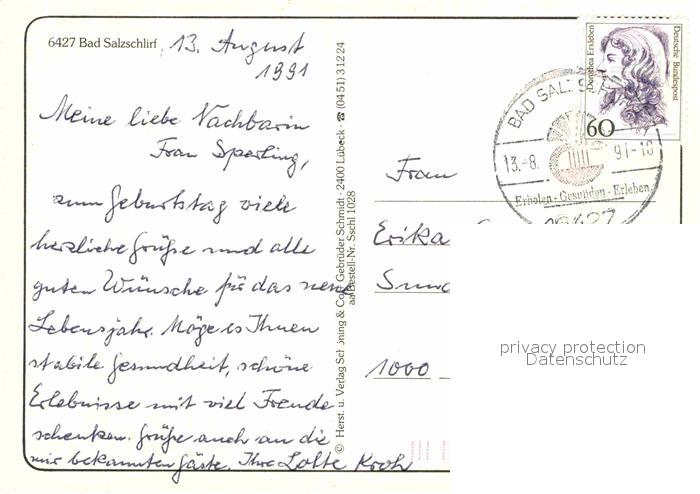 6427 Bad Salzschlirf, 13. August
1991
Meine liebe Nachbarin
Frau Sperling,
zum Geburtstag viele
herzliche Grüße und alle
guten Wünsche für das neue
Lebensjahr. Möge es Ihnen
stabile Gesundheit, schöne
Erlebnisse mit viel Freude
schenken. Grüße auch an die
mir bekannten Gäste. Ihre Lotte Kroh
© Herst. u. Verlag Schöning & Co + Gebrüder Schmidt · 2400 Lübeck · ☎ (04 51) 3 12 24
Bestell-Nr. Sschl 1028
Dorothea Erxleben
Deutsche Bundespost
60
BAD SALZS
13.-8. 91-18
Erholen - Gesunden - Erleben
6427
Frau
Erika
1000
privacy protection
Datenschutz